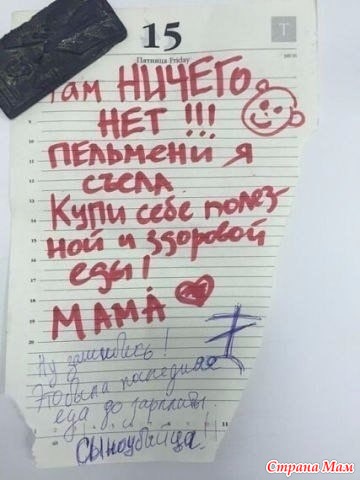 15
Пятница Friday
Там НИЧЕГО
НЕТ !!!
ПЕЛЬМЕНИ Я
СЪЕЛА
Купи себе полез-
ной и здоровой
еды!
МАМА
Ну зашибись!
Это была последняя
еда до зарплаты
Сыноубийца.
Страна Мам